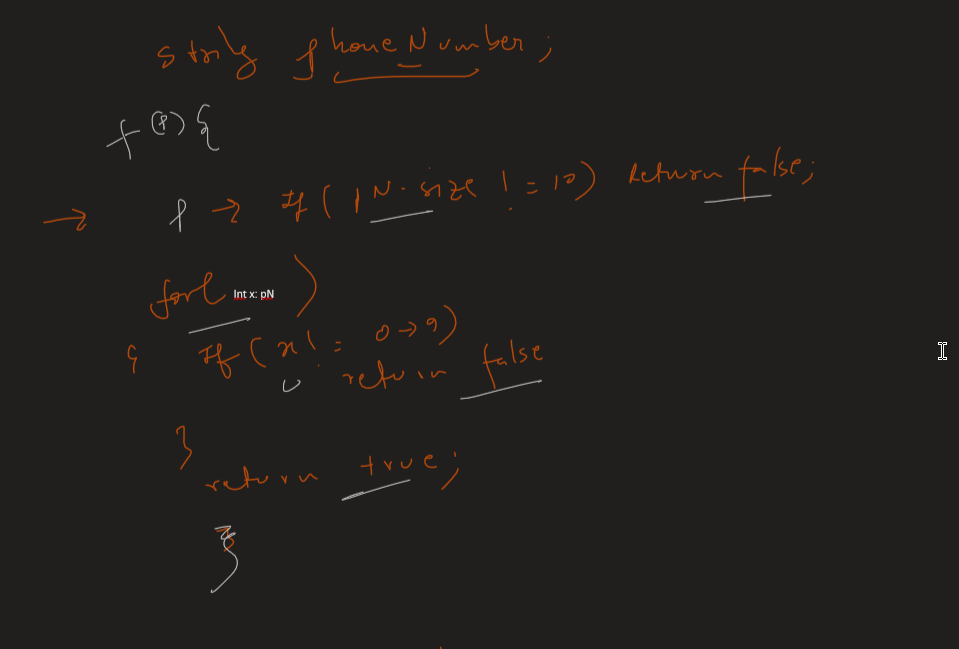 string phoneNumber;
f(P){
→ P → If(pN.size != 10) return false;
for( Int x: pN )
{ If(x != 0→9)
return false
}
return true;
}